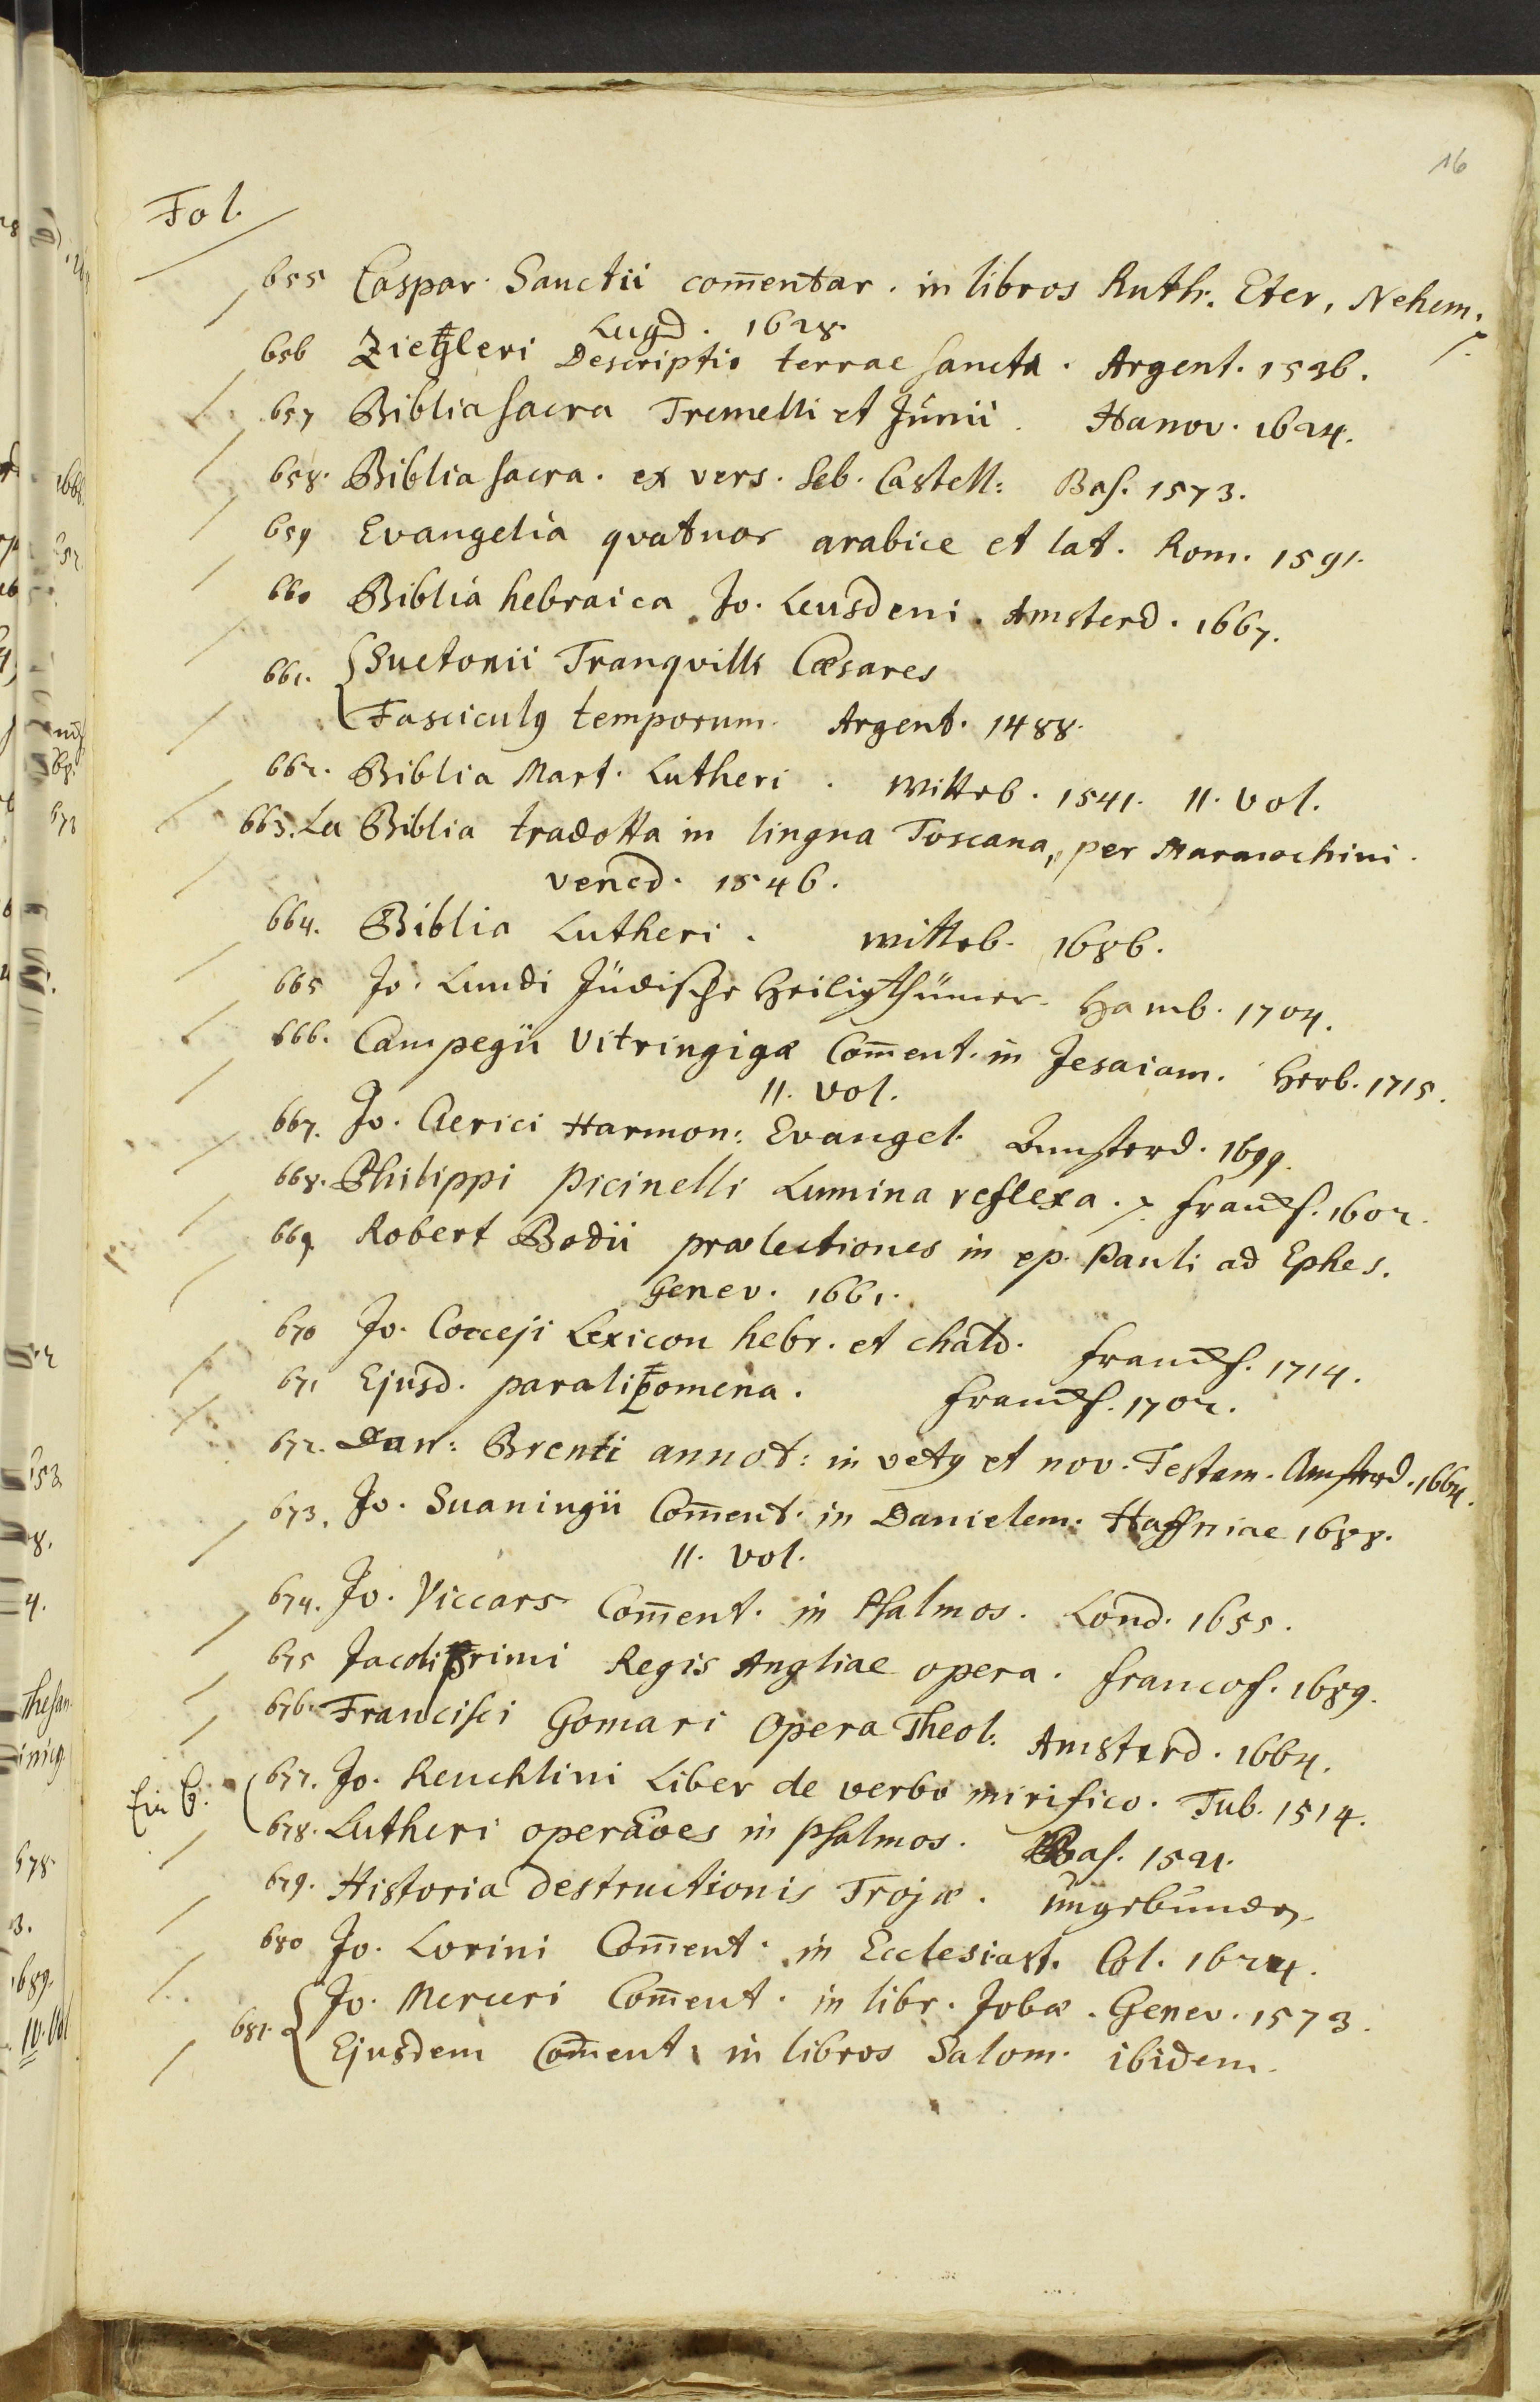 16
Fol.
655 Caspar. Sanctii com̄entar. in libros Ruth. Eter, Nehem.
Lugd. 1628.
656 Ziegleri Descriptio terrae sancta. Argent. 1536.
657 Biblia sacra Tremelli et Junii. Hanov. 1624.
658. Biblia sacra. ex vers. Seb. Castell: Bas. 1573.
659 Evangelia qvatuor arabice et lat. Rom. 1591.
660 Biblia hebraica Jo. Leusdeni. Amsterd. 1667.
661. Suetonii Tranqvilli Cæsares
Fasciculy temporum. Argent. 1488.
662. Biblia Mart. Lutheri. Witteb. 1541. II. vol.
663. La Biblia tradotta in lingua Toscana, per Marmochini.
Vened. 1546.
664. Biblia Lutheri. Witteb. 1686.
665 Jo. Lundi Jüdische Heiligthümer. Hamb. 1704.
666. Campegii Vitringigæ Com̄ent. in Jesaiam. Herb. 1715.
II. vol.
667. Jo. Clerici Harmon: Evangel. Amsterd. 1699.
668. Philippi Picinelli Lumina reflexa. Francf. 1602.
669 Robert Bodii prælectiones in ep. Pauli ad Ephes.
Genev. 1661.
670 Jo. Cocceji Lexicon hebr. et chald. Francf. 1714.
671 Ejusd. paralipomena. Francf. 1702.
672. Dan: Brenii annot: in vety et nov. Testam. Amsterd. 1664.
673. Jo. Suaningii Com̄ent. in Danielem. Haffniae 1688.
II. vol.
674. Jo. Viccars Com̄ent. in Psalmos. Lond. 1655.
675 Jacobi primi Regis Angliae opera. Francof. 1689.
676. Francisci Gomari Opera Theol: Amsterd. 1664.
Ein B. 677. Jo. Reuchlini Liber de verbo mirifico. Tub. 1514.
678. Lutheri operāoes in Psalmos. Bas. 1521.
679. Historia destructionis Trojæ. ungebunden.
680 Jo. Lorini Com̄ent. in Ecclesiast. Col. 1624.
681. Jo. Merceri Com̄ent. in libr. Jobæ. Genev. 1573.
Ejusdem Com̄ent. in libros Salom. ibidem.